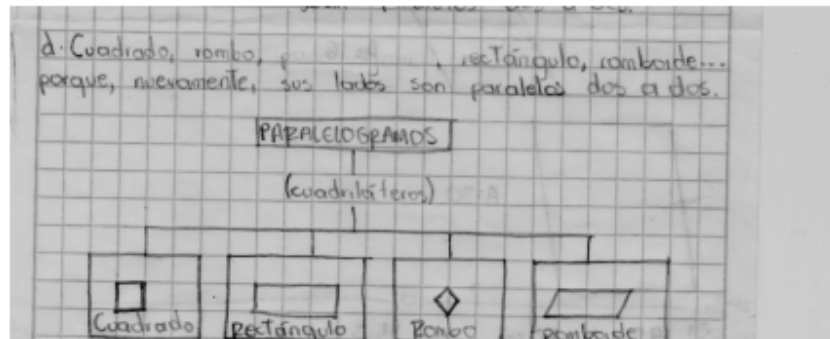 d. Cuadrado, rombo, rectángulo, romboide...
porque, nuevamente, sus lados son paralelos dos a dos.
PARALELOGRAMOS
(cuadriláteros)
Cuadrado Rectángulo Rombo Romboide